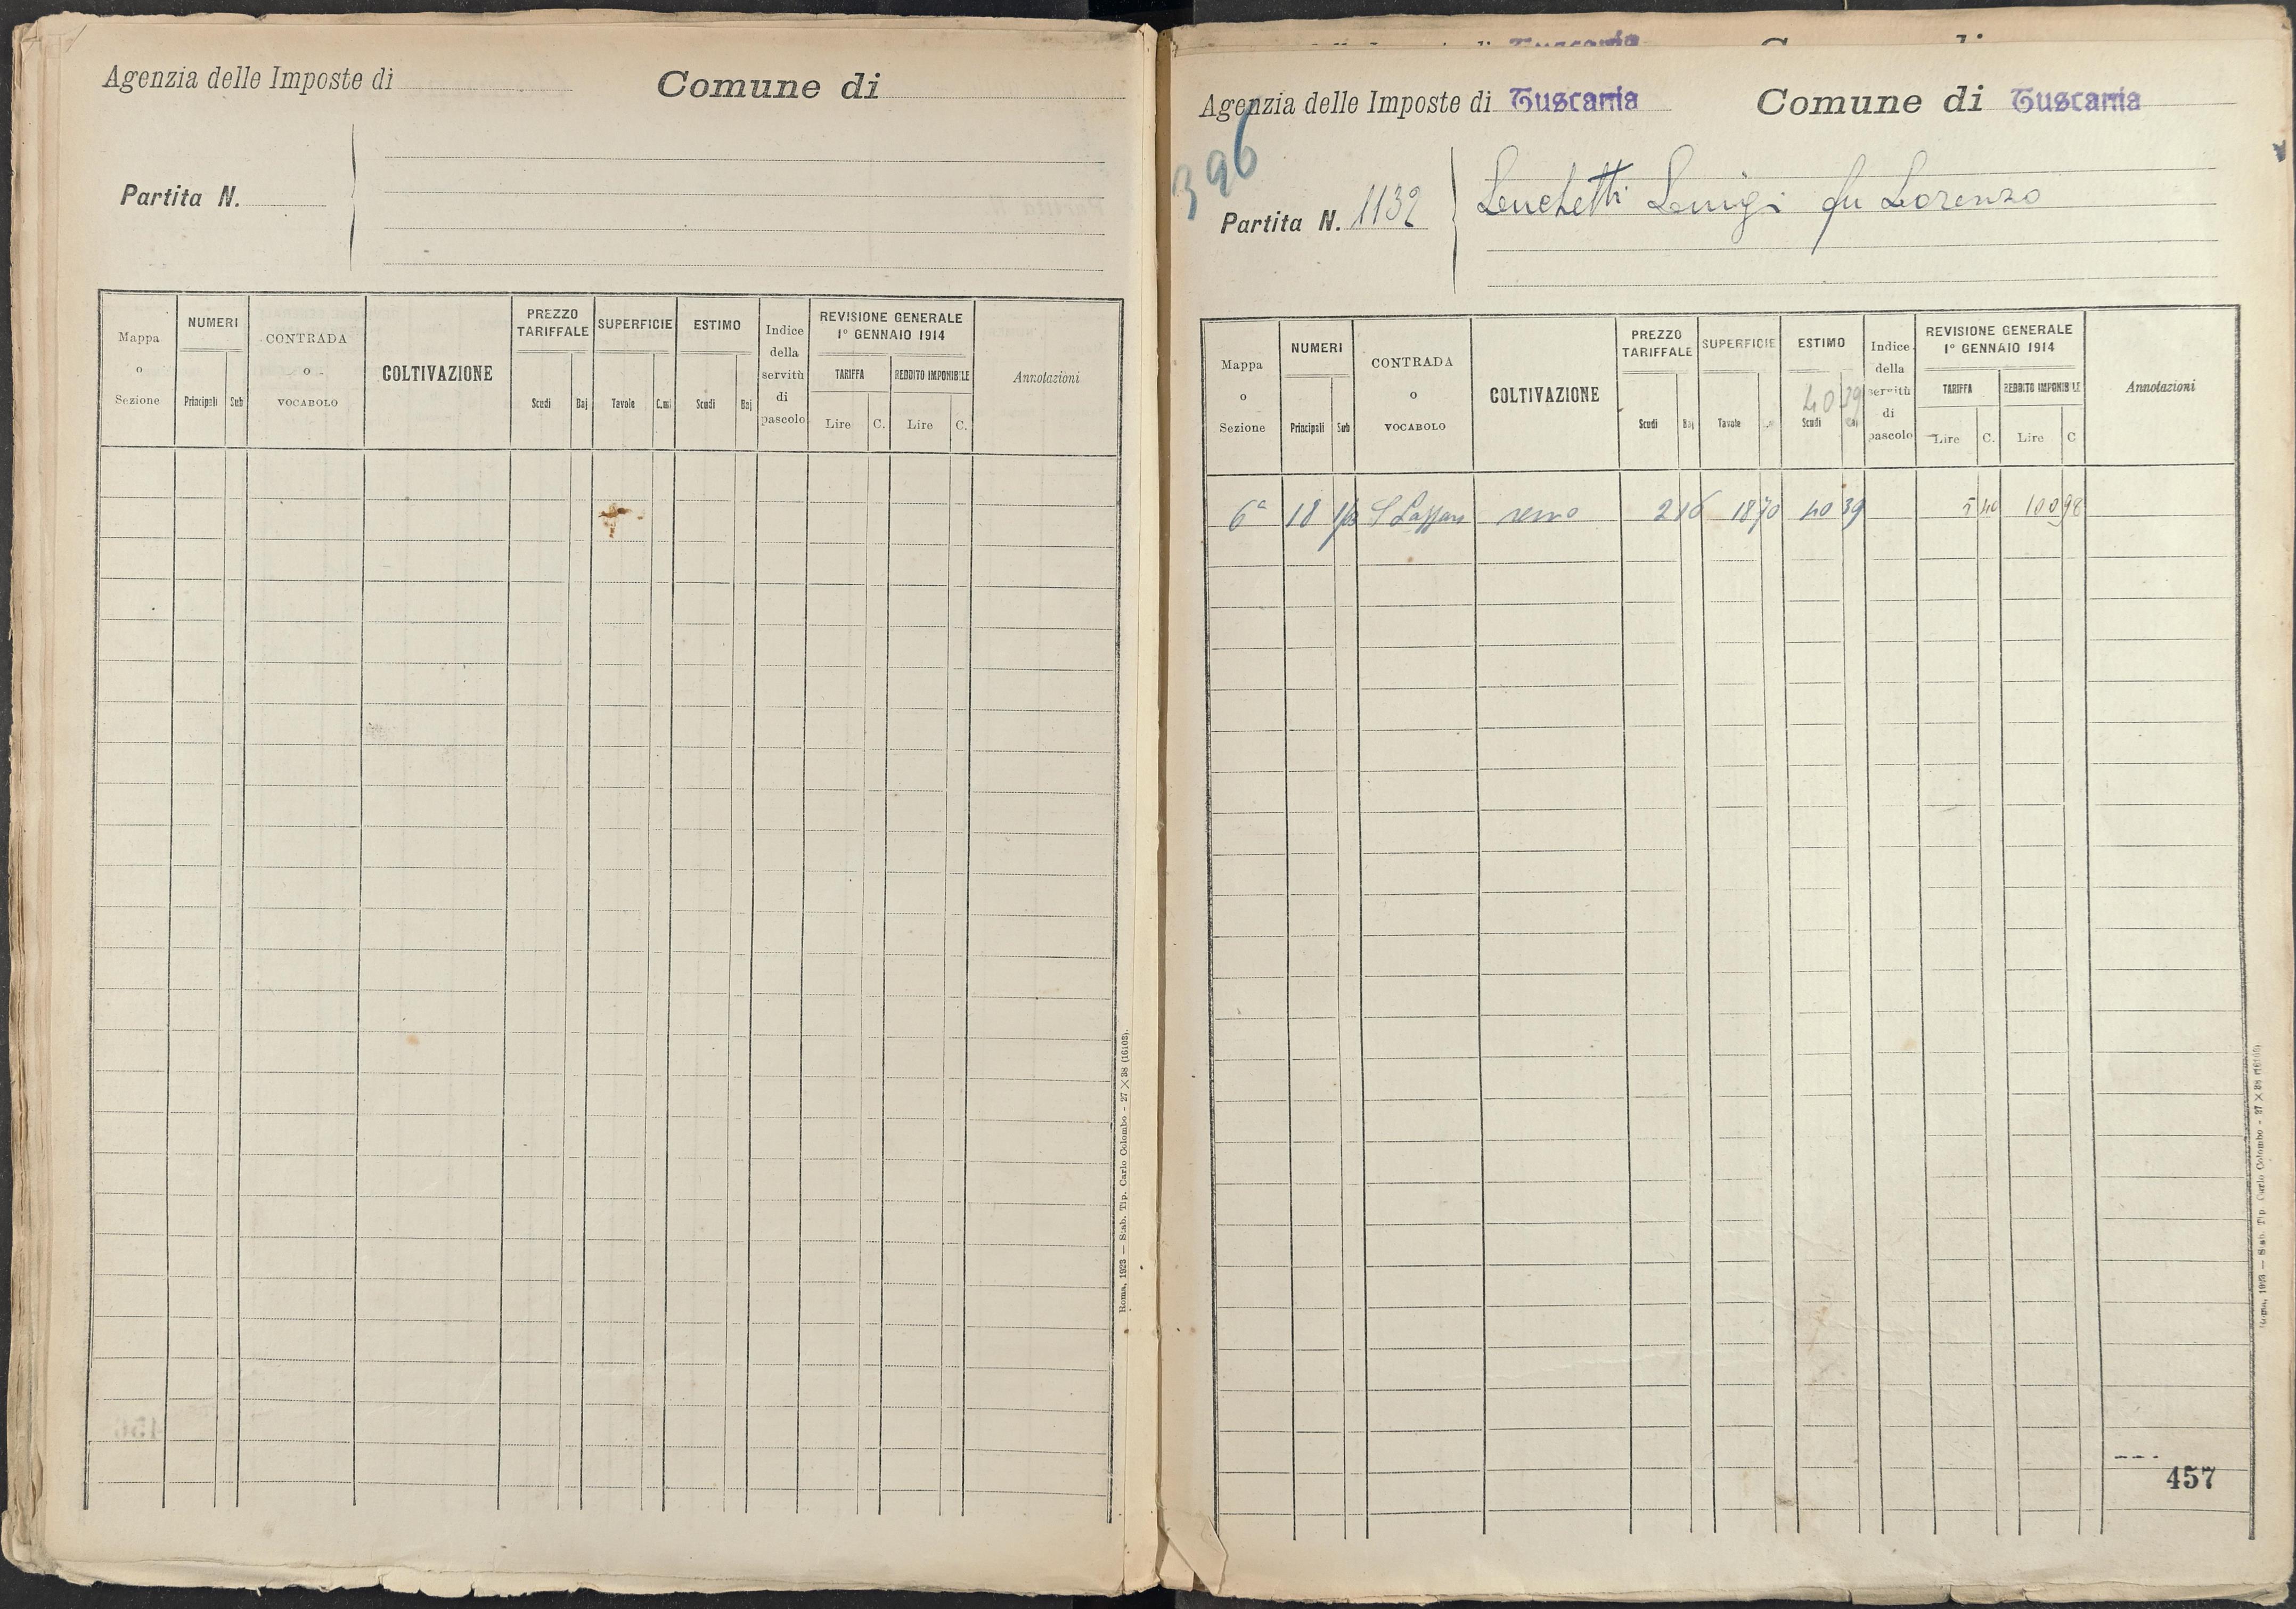 Agenzia delle Imposte di
Comune di
Partita N.
Mappa o Sezione
NUMERI
Principali Sub
CONTRADA o VOCABOLO
COLTIVAZIONE
PREZZO TARIFFALE
Scudi Baj
SUPERFICIE
Tavole C.mi
ESTIMO
Scudi Baj
Indice della servitù di pascolo
REVISIONE GENERALE
1° GENNAIO 1914
TARIFFA
Lire C.
REDDITO IMPONIBILE
Lire C.
Annotazioni
Roma, 1923 — Stab. Tip. Carlo Colombo - 27 × 38 (16103).
Agenzia delle Imposte di Tuscania
Comune di Tuscania
396
Partita N. 1132
Luchetti Luigi fu Lorenzo
Mappa o Sezione
NUMERI
Principali Sub
CONTRADA o VOCABOLO
COLTIVAZIONE
PREZZO TARIFFALE
Scudi Baj
SUPERFICIE
Tavole
ESTIMO
40 39
Scudi Baj
Indice della servitù di pascolo
REVISIONE GENERALE
1° GENNAIO 1914
TARIFFA
Lire C.
REDDITO IMPONIBILE
Lire C
Annotazioni
6ª 18 S Lazzaro 2 16 18 70 40 39 5 40 100 98
457
Roma, 1923 — Stab. Tip. Carlo Colombo - 27 × 38 (16103)